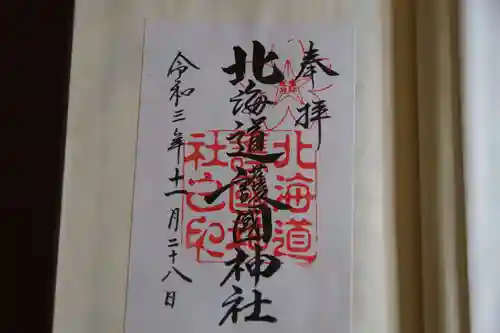 奉拝
北海道護國神社
北海道
護國神
社之印
令和三年十一月二十八日